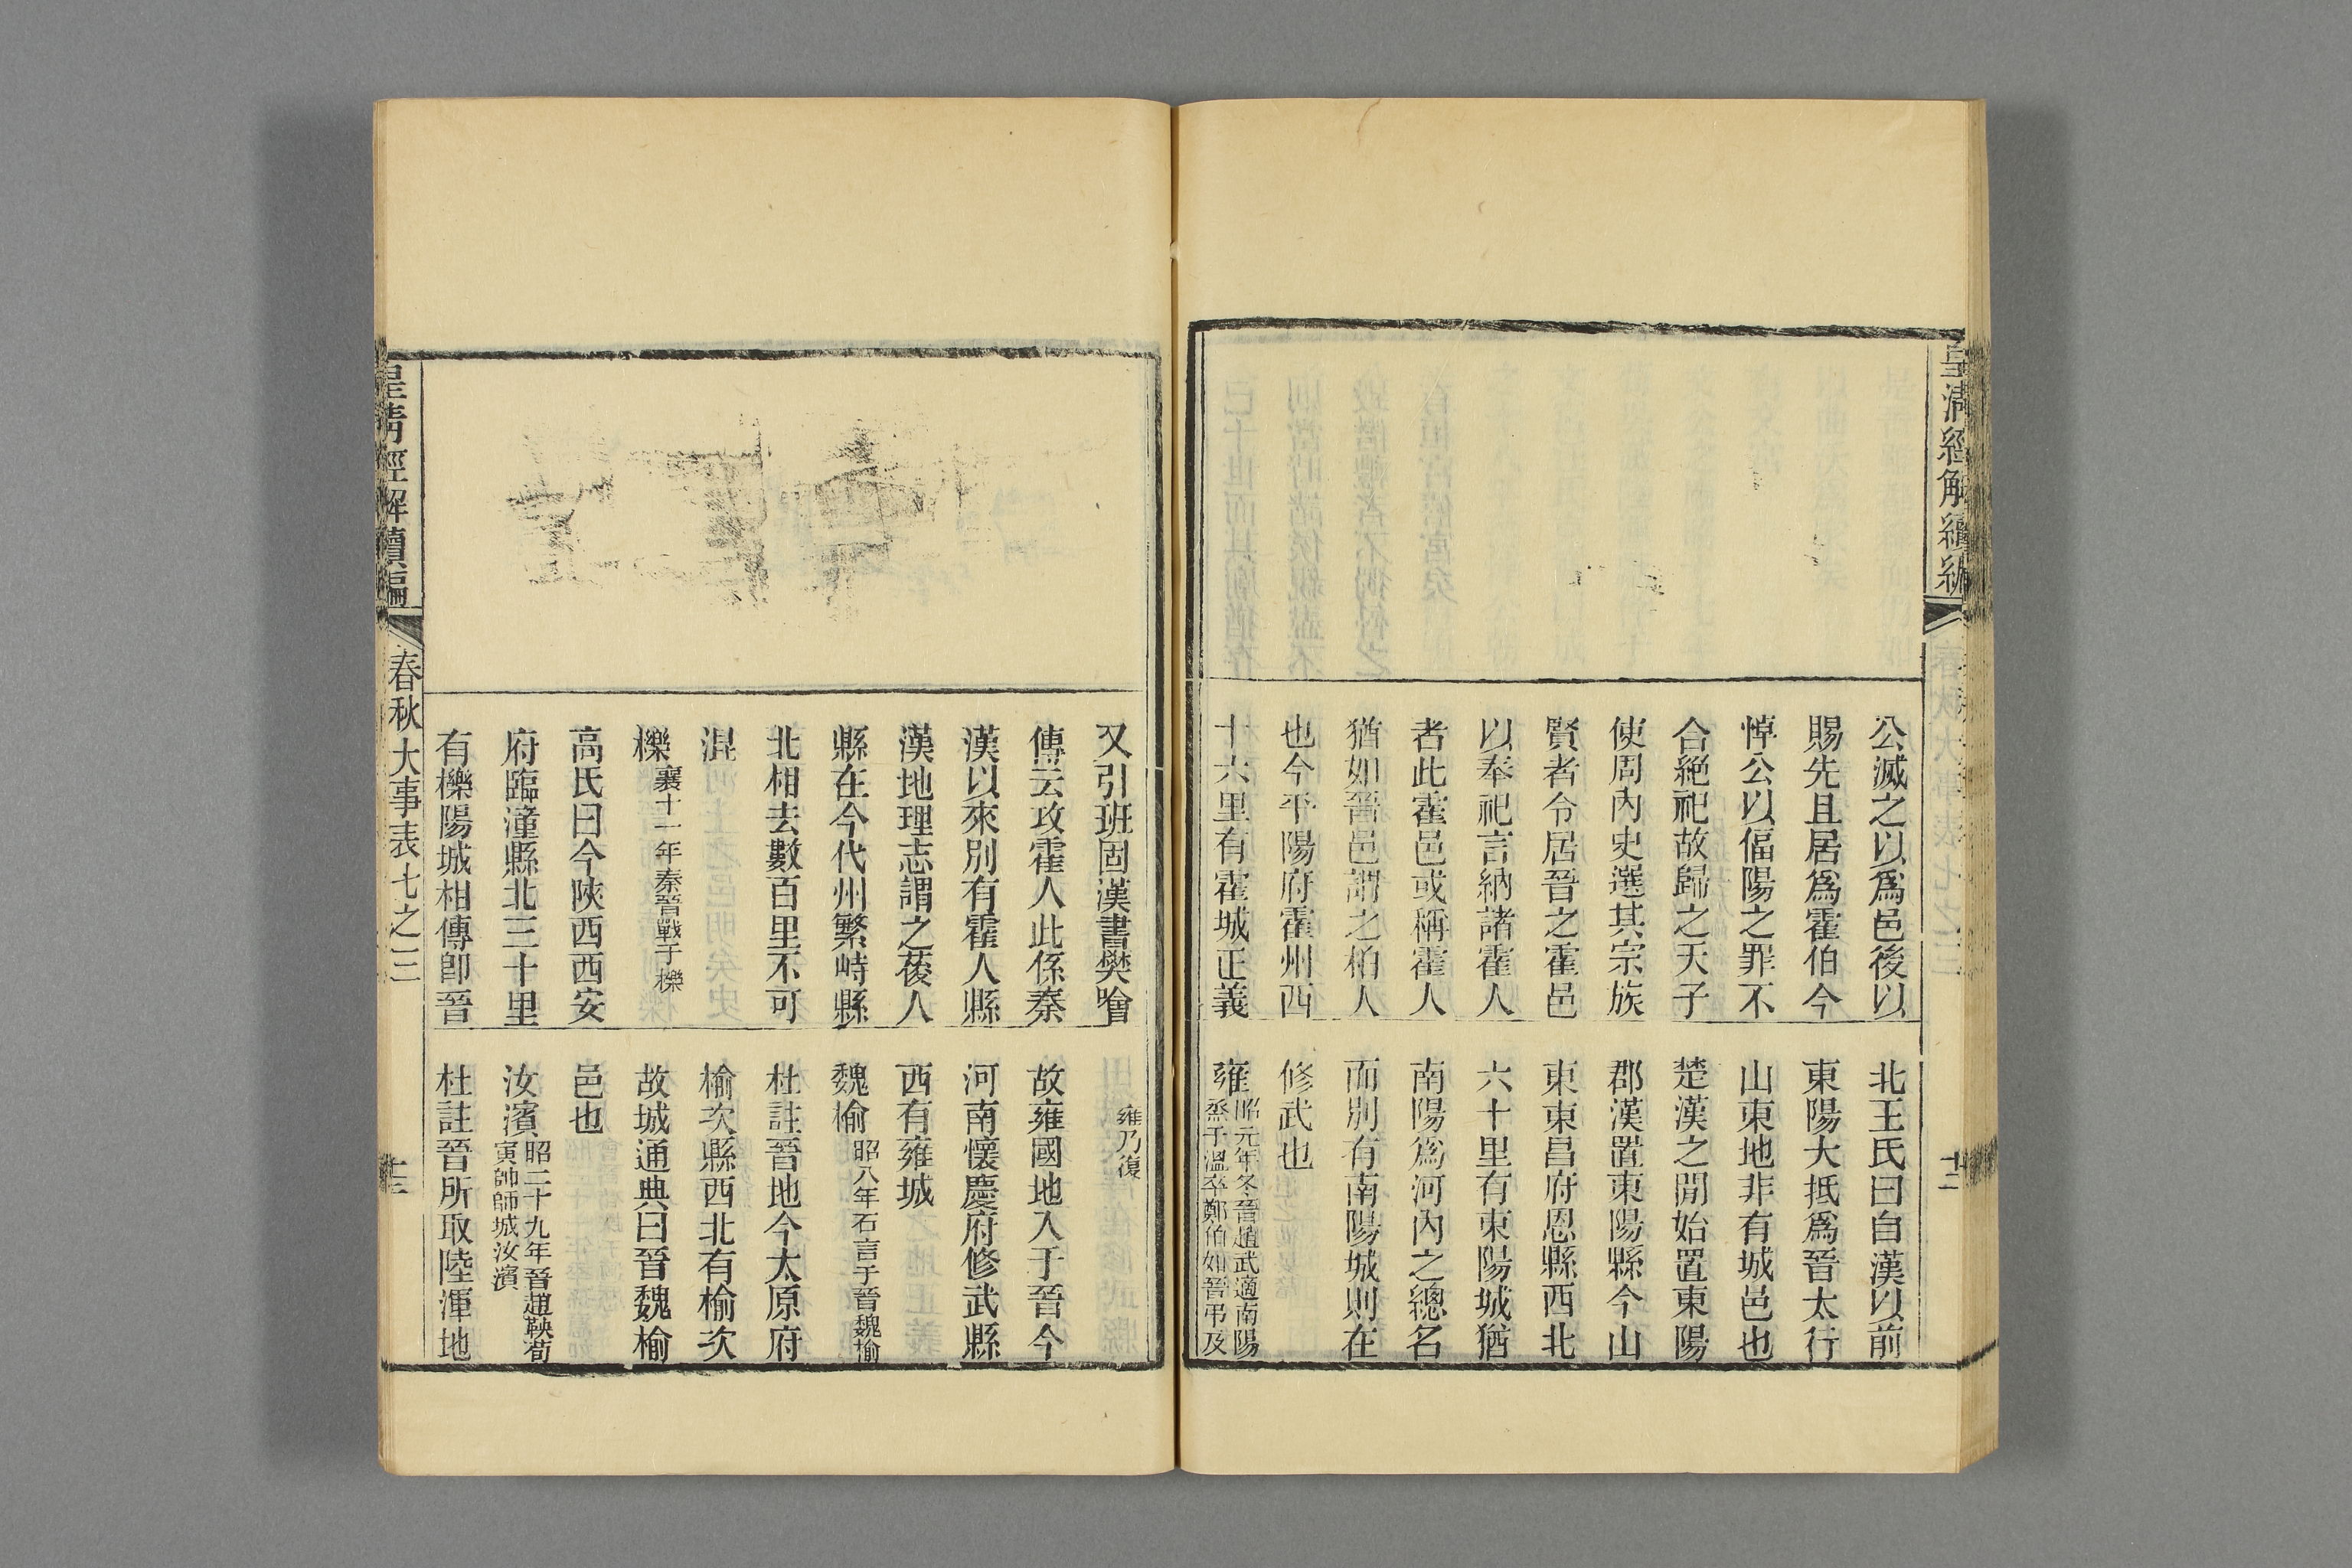 皇清經解續編
十二
公滅之以爲邑後以
賜先且居爲霍伯今
悼公以偪陽之罪不
合絕祀故歸之天子
使周內史選其宗族
賢者令居晉之霍邑
以奉祀言納諸霍人
者此霍邑或稱霍人
猶如晉邑謂之柏人
也今平陽府霍州西
十六里有霍城正義
北王氏曰自漢以前
東陽大抵爲晉太行
山東地非有城邑也
楚漢之閒始置東陽
郡漢置東陽縣今山
東東昌府恩縣西北
六十里有東陽城猶
南陽爲河內之總名
而別有南陽城則在
修武也
雍昭元年冬晉趙武適南陽
烝于溫卒鄭伯如晉弔及
又引班固漢書樊噲
傳云攻霍人此係秦
漢以來別有霍人縣
漢地理志謂之葰人
縣在今代州繁峙縣
北相去數百里不可
混
櫟襄十一年秦晉戰于櫟
高氏曰今陝西西安
府臨潼縣北三十里
有櫟陽城相傳卽晉
雍乃復
故雍國地入于晉今
河南懷慶府修武縣
西有雍城
魏榆昭八年石言于晉魏榆
杜註晉地今太原府
榆次縣西北有榆次
故城通典曰晉魏榆
邑也
汝濱昭二十九年晉趙鞅荀
寅帥師城汝濱
杜註晉所取陸渾地
皇清經解續編
春秋大事表七之三
十三